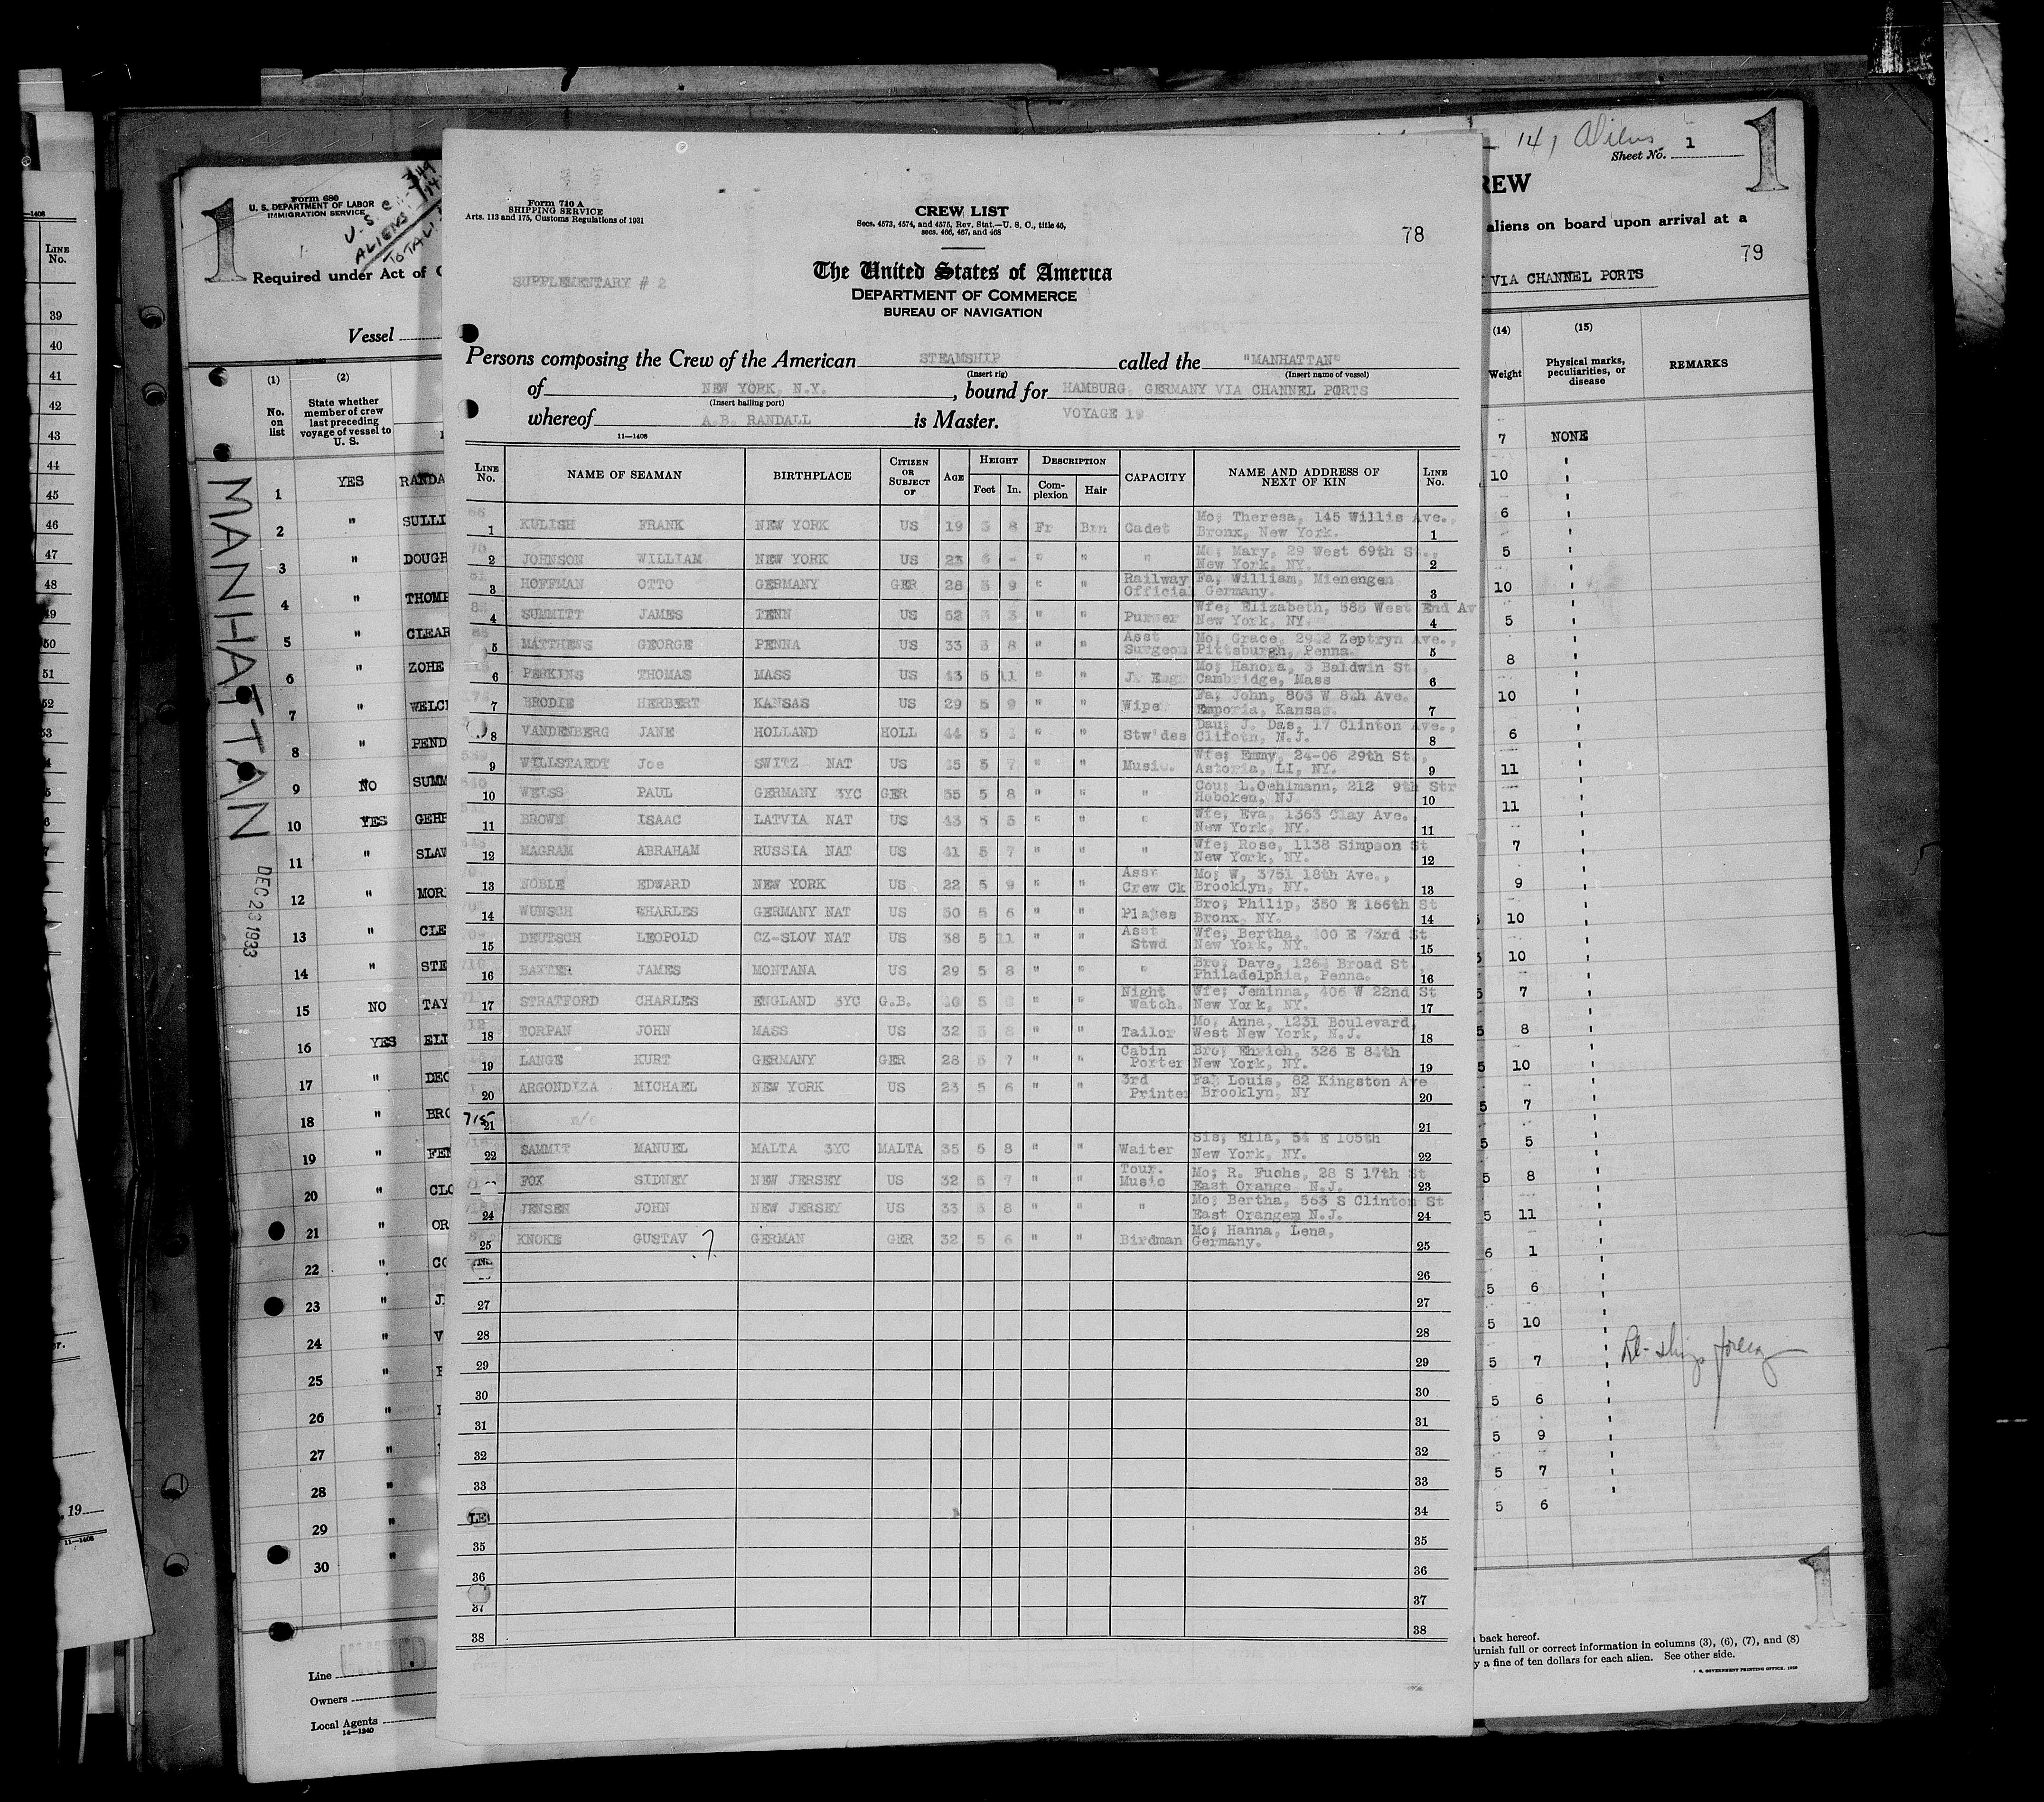 11—1408
LINE No.
39
40
41
42
43
44
45
46
47
48
49
50
51
52
19
11—1408
1
Form 680
U. S. DEPARTMENT OF LABOR
IMMIGRATION SERVICE
U.S.C.
ALIENS
TOTAL
Required under Act of
Vessel
(1) (2)
No. on list
State whether member of crew last preceding voyage of vessel to U. S.
MANHATTAN
DEC 28 1933
1 YES RANDA
2 " SULLI
3 " DOUGH
4 " THOMP
5 " CLEAR
6 " ZOHE
7 " WELCH
8 " PEND
9 NO SUMM
10 YES GEHR
11 " SLAV
12 " MOR
13 " CLE
14 " STE
15 NO TAY
16 YES ELI
17 " DEC
18 " BRO
19 " FEN
20 " CLO
21 " OR
22 " CO
23 " J
24 " V
25 "
26 "
27 "
28 "
29 "
30 "
Line
Owners
Local Agents
14—1240
Form 710 A
SHIPPING SERVICE
Arts. 113 and 175, Customs Regulations of 1931
CREW LIST
Secs. 4573, 4574, and 4575, Rev. Stat.—U. S. C., title 46,
secs. 466, 467, and 468
78
SUPPLEMENTARY # 2
The United States of America
DEPARTMENT OF COMMERCE
BUREAU OF NAVIGATION
Persons composing the Crew of the American STEAMSHIP called the "MANHATTAN"
(Insert rig) (Insert name of vessel)
of NEW YORK, N.Y. , bound for HAMBURG, GERMANY VIA CHANNEL PORTS
(Insert hailing port)
whereof A.B. RANDALL is Master. VOYAGE 19
11—1408
LINE No. NAME OF SEAMAN BIRTHPLACE CITIZEN OR SUBJECT OF AGE HEIGHT Feet In. DESCRIPTION Complexion Hair CAPACITY NAME AND ADDRESS OF NEXT OF KIN LINE No.
1 KULISH FRANK NEW YORK US 19 8 Fr Brn Cadet Mo; Theresa, 145 Willis Ave., Bronx, New York. 1
2 JOHNSON WILLIAM NEW YORK US 23 - " " " Mo; Mary, 29 West 69th St., New York, NY. 2
3 HOFFMAN OTTO GERMANY GER 28 9 " " Railway Official Fa; William, Mienengen, Germany. 3
4 SUMMITT JAMES PENN US 52 " " Purser Wfe; Elizabeth, 585 West End Av New York, NY. 4
5 MATTHENS GEORGE PENNA US 33 8 " " Asst Surgeon Mo; Grace, 2942 Zeptryn Ave., Pittsburgh, Penna. 5
6 PERKINS THOMAS MASS US 43 5 11 " " Jr Engr Mo; Hanora, 3 Baldwin St., Cambridge, Mass 6
7 BRODIE HERBERT KANSAS US 29 5 9 " " Wiper Fa; John, 863 W 8th Ave. Emporia, Kansas. 7
8 VANDENBERG JANE HOLLAND HOLL 44 5 1 " " Stw'des Dau; J. Das, 17 Clinton Ave., Clifotn, N.J. 8
9 WILLSTAEDT Joe SWITZ NAT US 5 7 " " Music. Wfe; Emmy, 24-06 29th St., Astoria, LI, NY. 9
10 WEISS PAUL GERMANY 3YC GER 55 5 8 " " " Cou; L.Oehlmann, 212 9th Str Hoboken, NJ 10
11 BROWN ISAAC LATVIA NAT US 43 5 5 " " " Wfe; Eva, 1363 Clay Ave. New York, NY. 11
12 MAGRAM ABRAHAM RUSSIA NAT US 41 5 7 " " " Wfe; Rose, 1138 Simpson St New York, NY. 12
13 NOBLE EDWARD NEW YORK US 22 5 9 " " Asst Crew Ck Mo; W, 3751 18th Ave., Brooklyn, NY. 13
14 WUNSCH CHARLES GERMANY NAT US 50 5 6 " " Plates Bro; Philip, 350 E 166th St Bronx, NY. 14
15 DEUTSCH LEOPOLD CZ-SLOV NAT US 38 5 11 " " Asst Stwd Wfe; Bertha, 400 E 73rd St New York, NY. 15
16 BAXTER JAMES MONTANA US 29 5 8 " " " Bro; Dave, 126 Broad St. Philadelphia, Penna. 16
17 STRATFORD CHARLES ENGLAND 3YC G.B. 5 " " Night Watch. Wfe; Jeminna, 406 W 22nd St New York, NY. 17
18 TORPAN JOHN MASS US 32 " " Tailor Mo; Anna, 1231 Boulevard, West New York, N.J. 18
19 LANGE KURT GERMANY GER 28 5 7 " " Cabin Porter Bro; Ehrich, 326 E 84th New York, NY. 19
20 ARGONDIZA MICHAEL NEW YORK US 23 5 6 " " 3rd Printer Fa; Louis, 82 Kingston Ave Brooklyn, NY 20
715 21 n/s 21
22 SAMMIT MANUEL MALTA 3YC MALTA 35 5 8 " " Waiter Sis; Ella, 54 E 105th New York, NY. 22
FOX SIDNEY NEW JERSEY US 32 5 7 " " Tour. Music Mo; R. Fuchs, 28 S 17th St East Orange N.J. 23
24 JENSEN JOHN NEW JERSEY US 33 8 " " " Mo; Bertha, 563 S Clinton St East Orangem N.J. 24
25 KNOKE GUSTAV ? GERMAN GER 32 5 6 " " Birdman Mo; Hanna, Lena, Germany. 25
26
27 27
28 28
29 29
30 30
31 31
32 32
33 33
34
35 35
36 36
37 37
38 38
141 Aliens
Sheet No. 1
1
REW
aliens on board upon arrival at a
79
VIA CHANNEL PORTS
(14) (15)
Weight
Physical marks, peculiarities, or disease
REMARKS
7 NONE
10 "
6 "
5 "
10 "
5 "
8 "
10 "
6 "
11 "
11 "
7 "
9 "
10 "
10 "
5 7 "
5 8 "
5 10 "
5 7 "
5 5 "
5 8 "
5 11 "
6 1 "
5 6 "
5 10 "
5 7 " Re-ships foreign
5 6 "
5 9 "
5 7 "
5 6
1
back hereof.
urnish full or correct information in columns (3), (6), (7), and (8)
y a fine of ten dollars for each alien. See other side.
GOVERNMENT PRINTING OFFICE